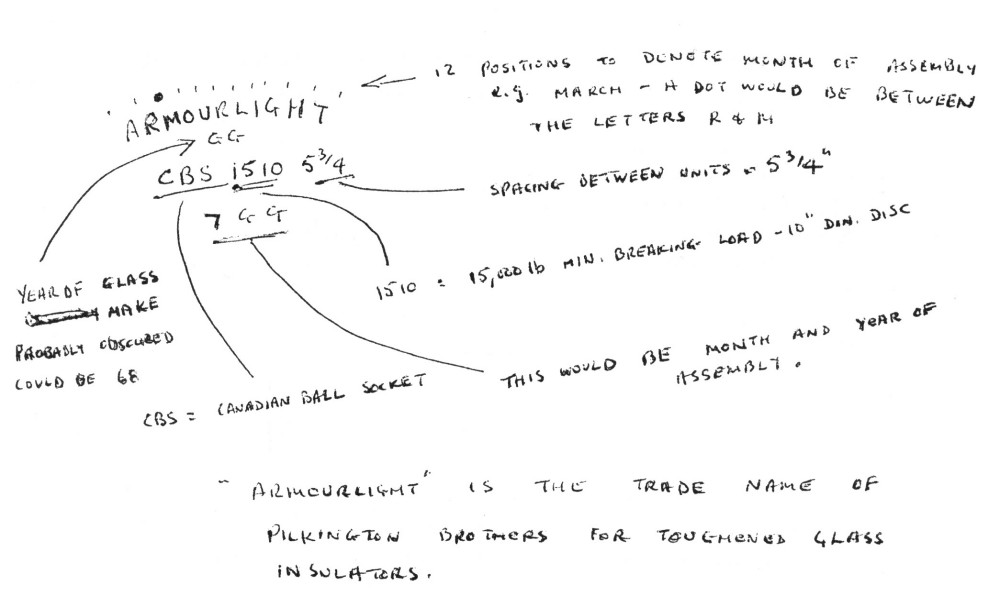 12 POSITIONS TO DENOTE MONTH OF ASSEMBLY
e.g. MARCH - A DOT WOULD BE BETWEEN
THE LETTERS R & M
ARMOURLIGHT
66
CBS 1510 5 3/4
7 66
SPACING BETWEEN UNITS = 5 3/4"
1510 = 15,000 lb MIN. BREAKING LOAD - 10" DIA. DISC
YEAR OF GLASS
MAKE
PROBABLY OBSCURED
COULD BE 68
CBS = CANADIAN BALL SOCKET
THIS WOULD BE MONTH AND YEAR OF
ASSEMBLY.
"ARMOURLIGHT" IS THE TRADE NAME OF
PILKINGTON BROTHERS FOR TOUGHENED GLASS
INSULATORS.